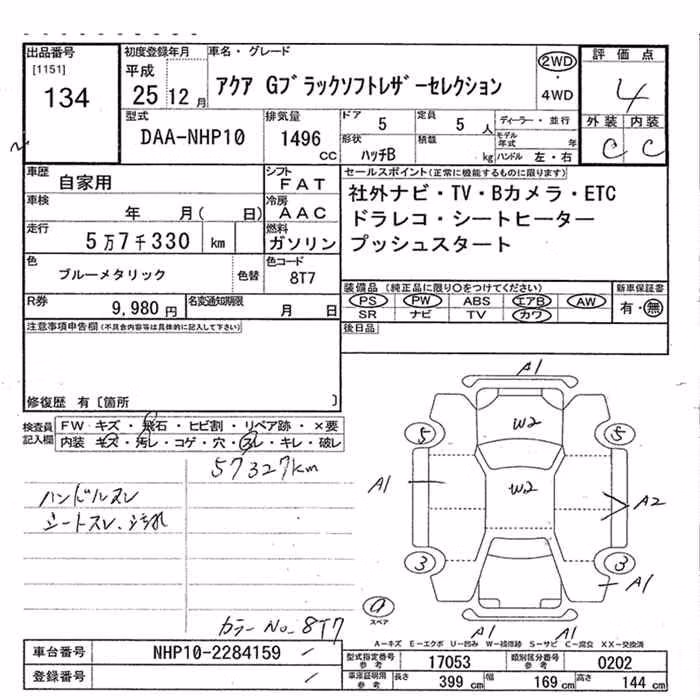 出品番号
[1151]
134
初度登録年月
平成
25 12 月
車名・グレード
アクア Gブラックソフトレザーセレクション
2WD
・
4WD
評価点
4
外装 内装
C C
型式
DAA-NHP10
排気量
1496
CC
ドア
5
定員
5 人
ディーラー・並行
形状
ハッチB
積載
kg
モデル年式 年
ハンドル 左・右
車歴
自家用
シフト
FAT
車検
年 月( 日)
冷房
AAC
走行
5万7千330 km
燃料
ガソリン
色
ブルーメタリック
色替
色コード
8T7
R券
9,980 円
名変通知期限
月 日
セールスポイント(正常に機能するものに限ります)
社外ナビ・TV・Bカメラ・ETC
ドラレコ・シートヒーター
プッシュスタート
装備品(純正品に限り○をつけてください)
PS PW ABS エアB AW
SR ナビ TV カワ
新車保証書
有・無
後日品
注意事項申告欄(不具合内容等は具体的に記入して下さい)
修復歴 有〔箇所 〕
検査員記入欄
FW キズ・飛石・ヒビ割・リペア跡・×要
内装 キズ・汚レ・コゲ・穴・スレ・キレ・破レ
57327km
ハンドルスレ
シートスレ・汚れ
カラーNo. 8T7
A1
W2
5 5
A1 W2 A2
3 3
A1
スペア
A1 A1
A-キズ E-エクボ U-凹み W-補修跡 S-サビ C-腐食 XX-交換済
車台番号
NHP10-2284159
登録番号
型式指定番号
参考
17053
類別区分番号
参考
0202
車庫証明用
参考
長さ 399 cm
幅 169 cm
高さ 144 cm